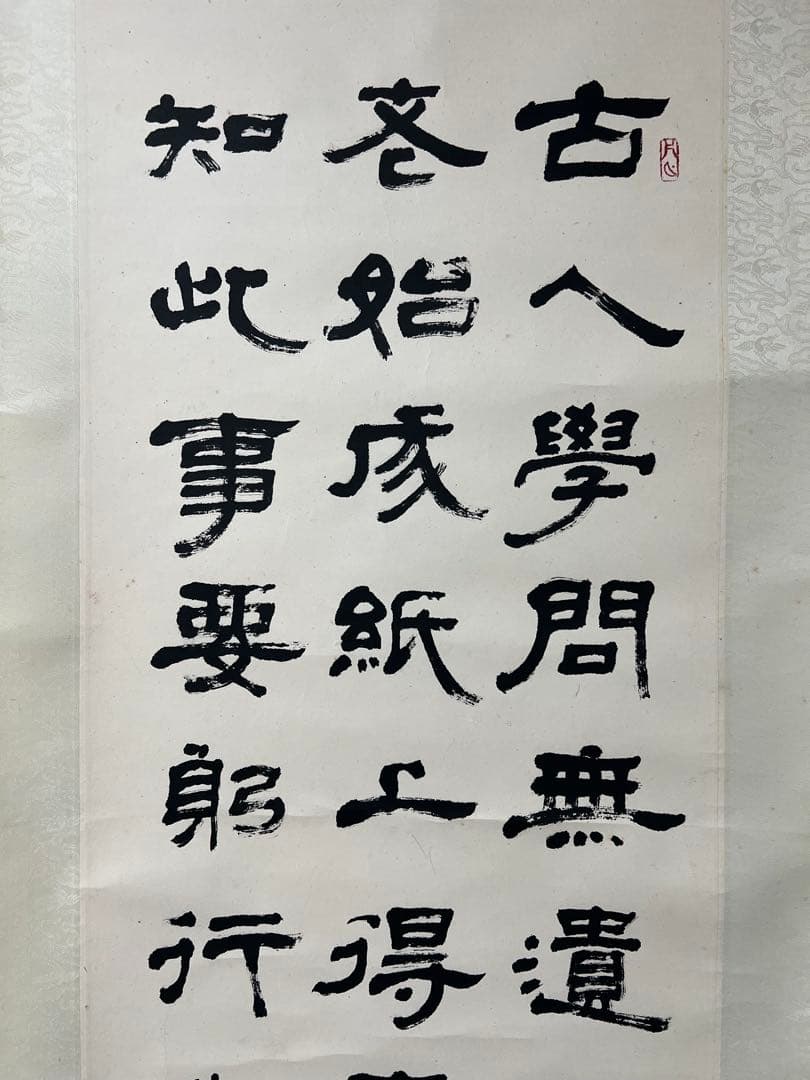 古人學問無遺
老始成紙上得
知此事要躬行